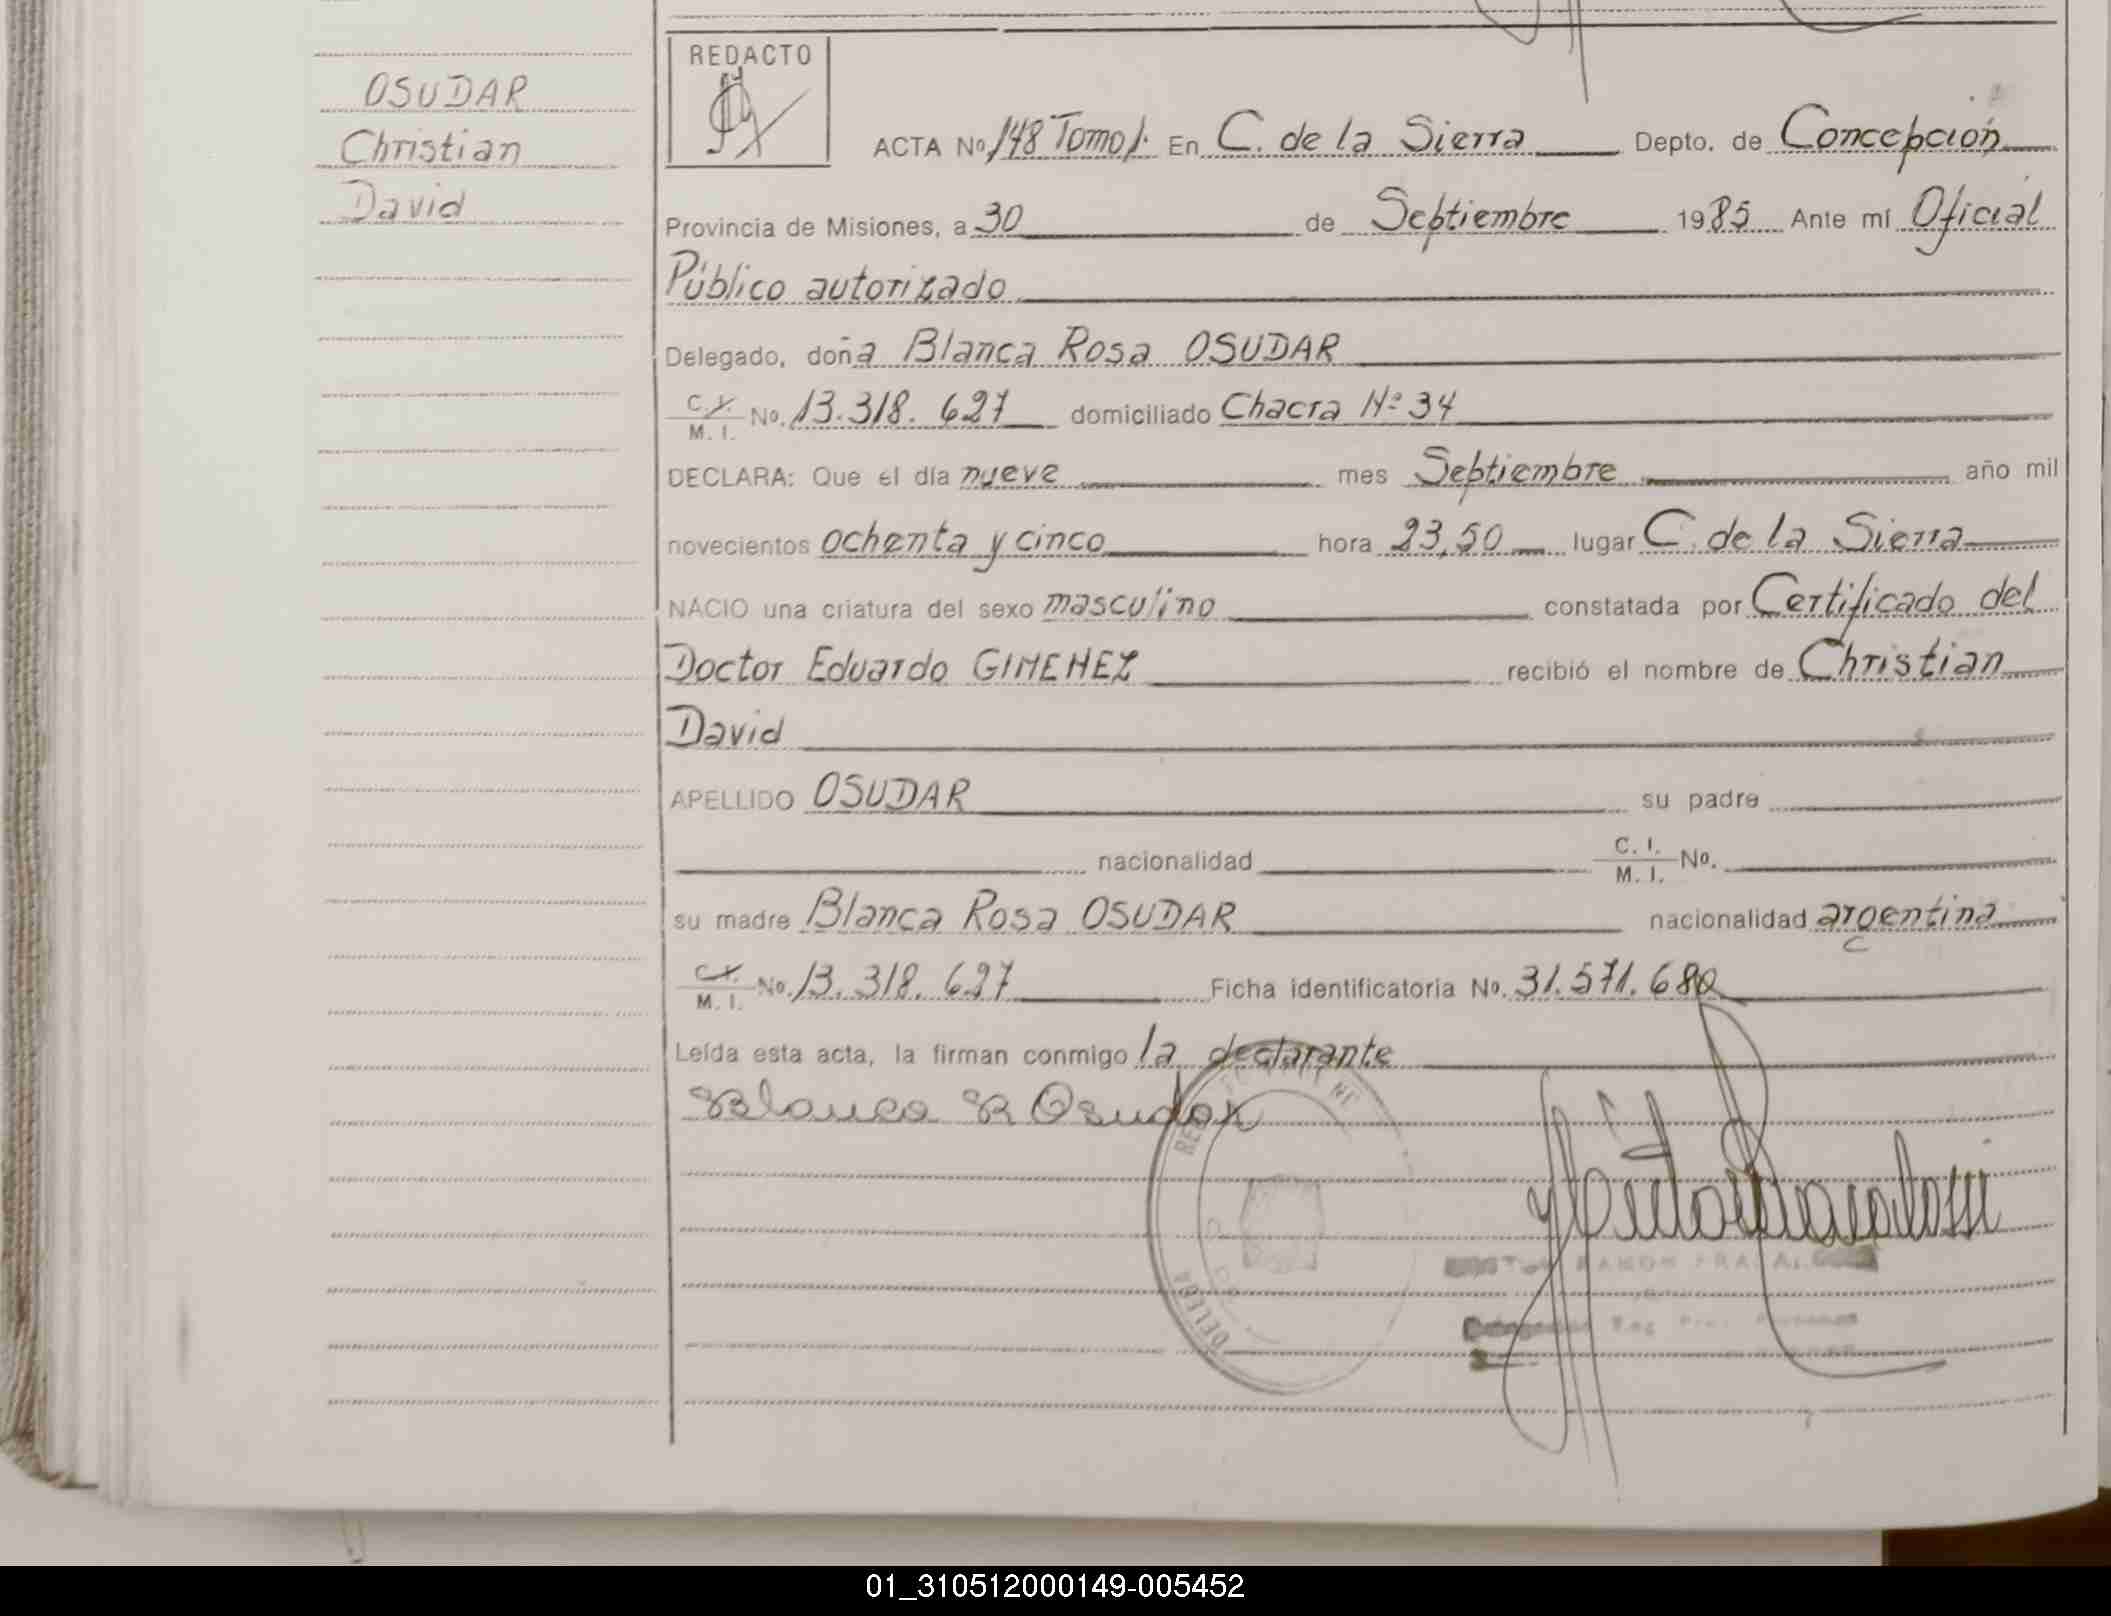 OSUDAR
Christian
David
REDACTO
ACTA Nº 148 Tomo I. En C. de la Sierra Depto. de Concepción
Provincia de Misiones, a 30 de Septiembre 1985 Ante mí Oficial
Público autorizado
Delegado, doña Blanca Rosa OSUDAR
C.I. M.I. No. 13.318.627 domiciliado Chacra Nº 34
DECLARA: Que el día nueve mes Septiembre año mil
novecientos ochenta y cinco hora 23,50 lugar C. de la Sierra
NACIO una criatura del sexo masculino constatada por Certificado del
Doctor Eduardo GIMENEZ recibió el nombre de Christian
David
APELLIDO OSUDAR su padre
nacionalidad C. I. M. I. No.
su madre Blanca Rosa OSUDAR nacionalidad argentina
C.I. M. I. No. 13.318.627 Ficha identificatoria No. 31.571.680
Leída esta acta, la firman conmigo la declarante
Blanca R Osudar
RAMON
01_310512000149-005452